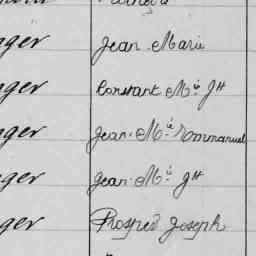 ger Jean Marie
ger Constant M.ie Jh
ger Jean. M.ie Emmanuel
ger Jean. M.ie Jh
ger Prosper Joseph